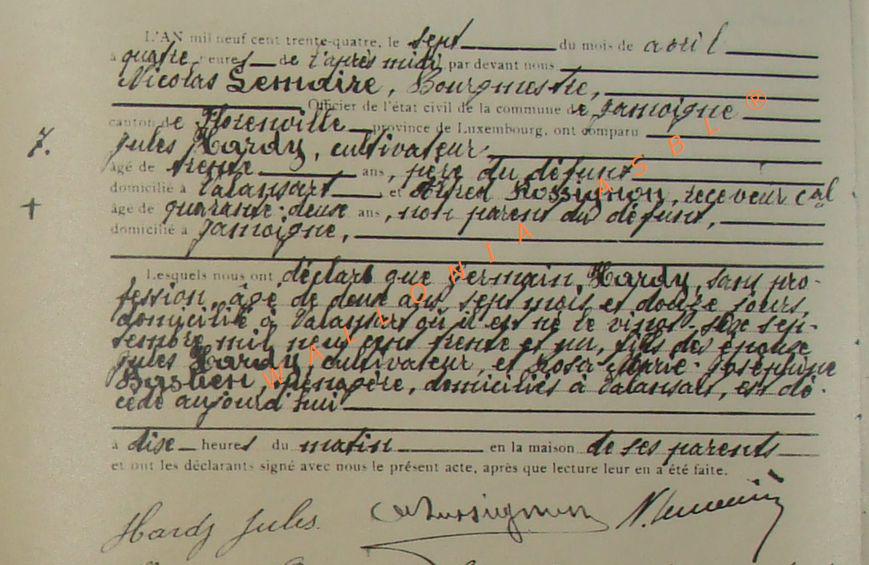 L'AN mil neuf cent trente-quatre, le sept du mois de avril
à quatre heures de l'après midi par devant nous
Nicolas Lemaire, Bourgmestre,
Officier de l'état civil de la commune de Jamoigne
canton de Florenville province de Luxembourg, ont comparu
7. Jules Hardy, cultivateur,
âgé de trente ans, père du défunt
domicilié à Valansart et Alfred Rossignon, receveur cal
âgé de quarante-deux ans, non parent du défunt,
domicilié à Jamoigne,
Lesquels nous ont déclaré que Germain Hardy, sans pro-
fession, âgé de deux ans sept mois et douze jours,
domicilié à Valansart où il est né le vingt-six sep-
tembre mil neuf cent trente et un, fils des époux
Jules Hardy, cultivateur, et Rosa-Marie-Joséphine
Bastien, ménagère, domiciliés à Valansart, est dé-
cédé aujourd'hui
à dix heures du matin en la maison de ses parents
et ont les déclarants signé avec nous le présent acte, après que lecture leur en a été faite.
Hardy Jules. N. Lemaire
WALLONIA ASBL ®